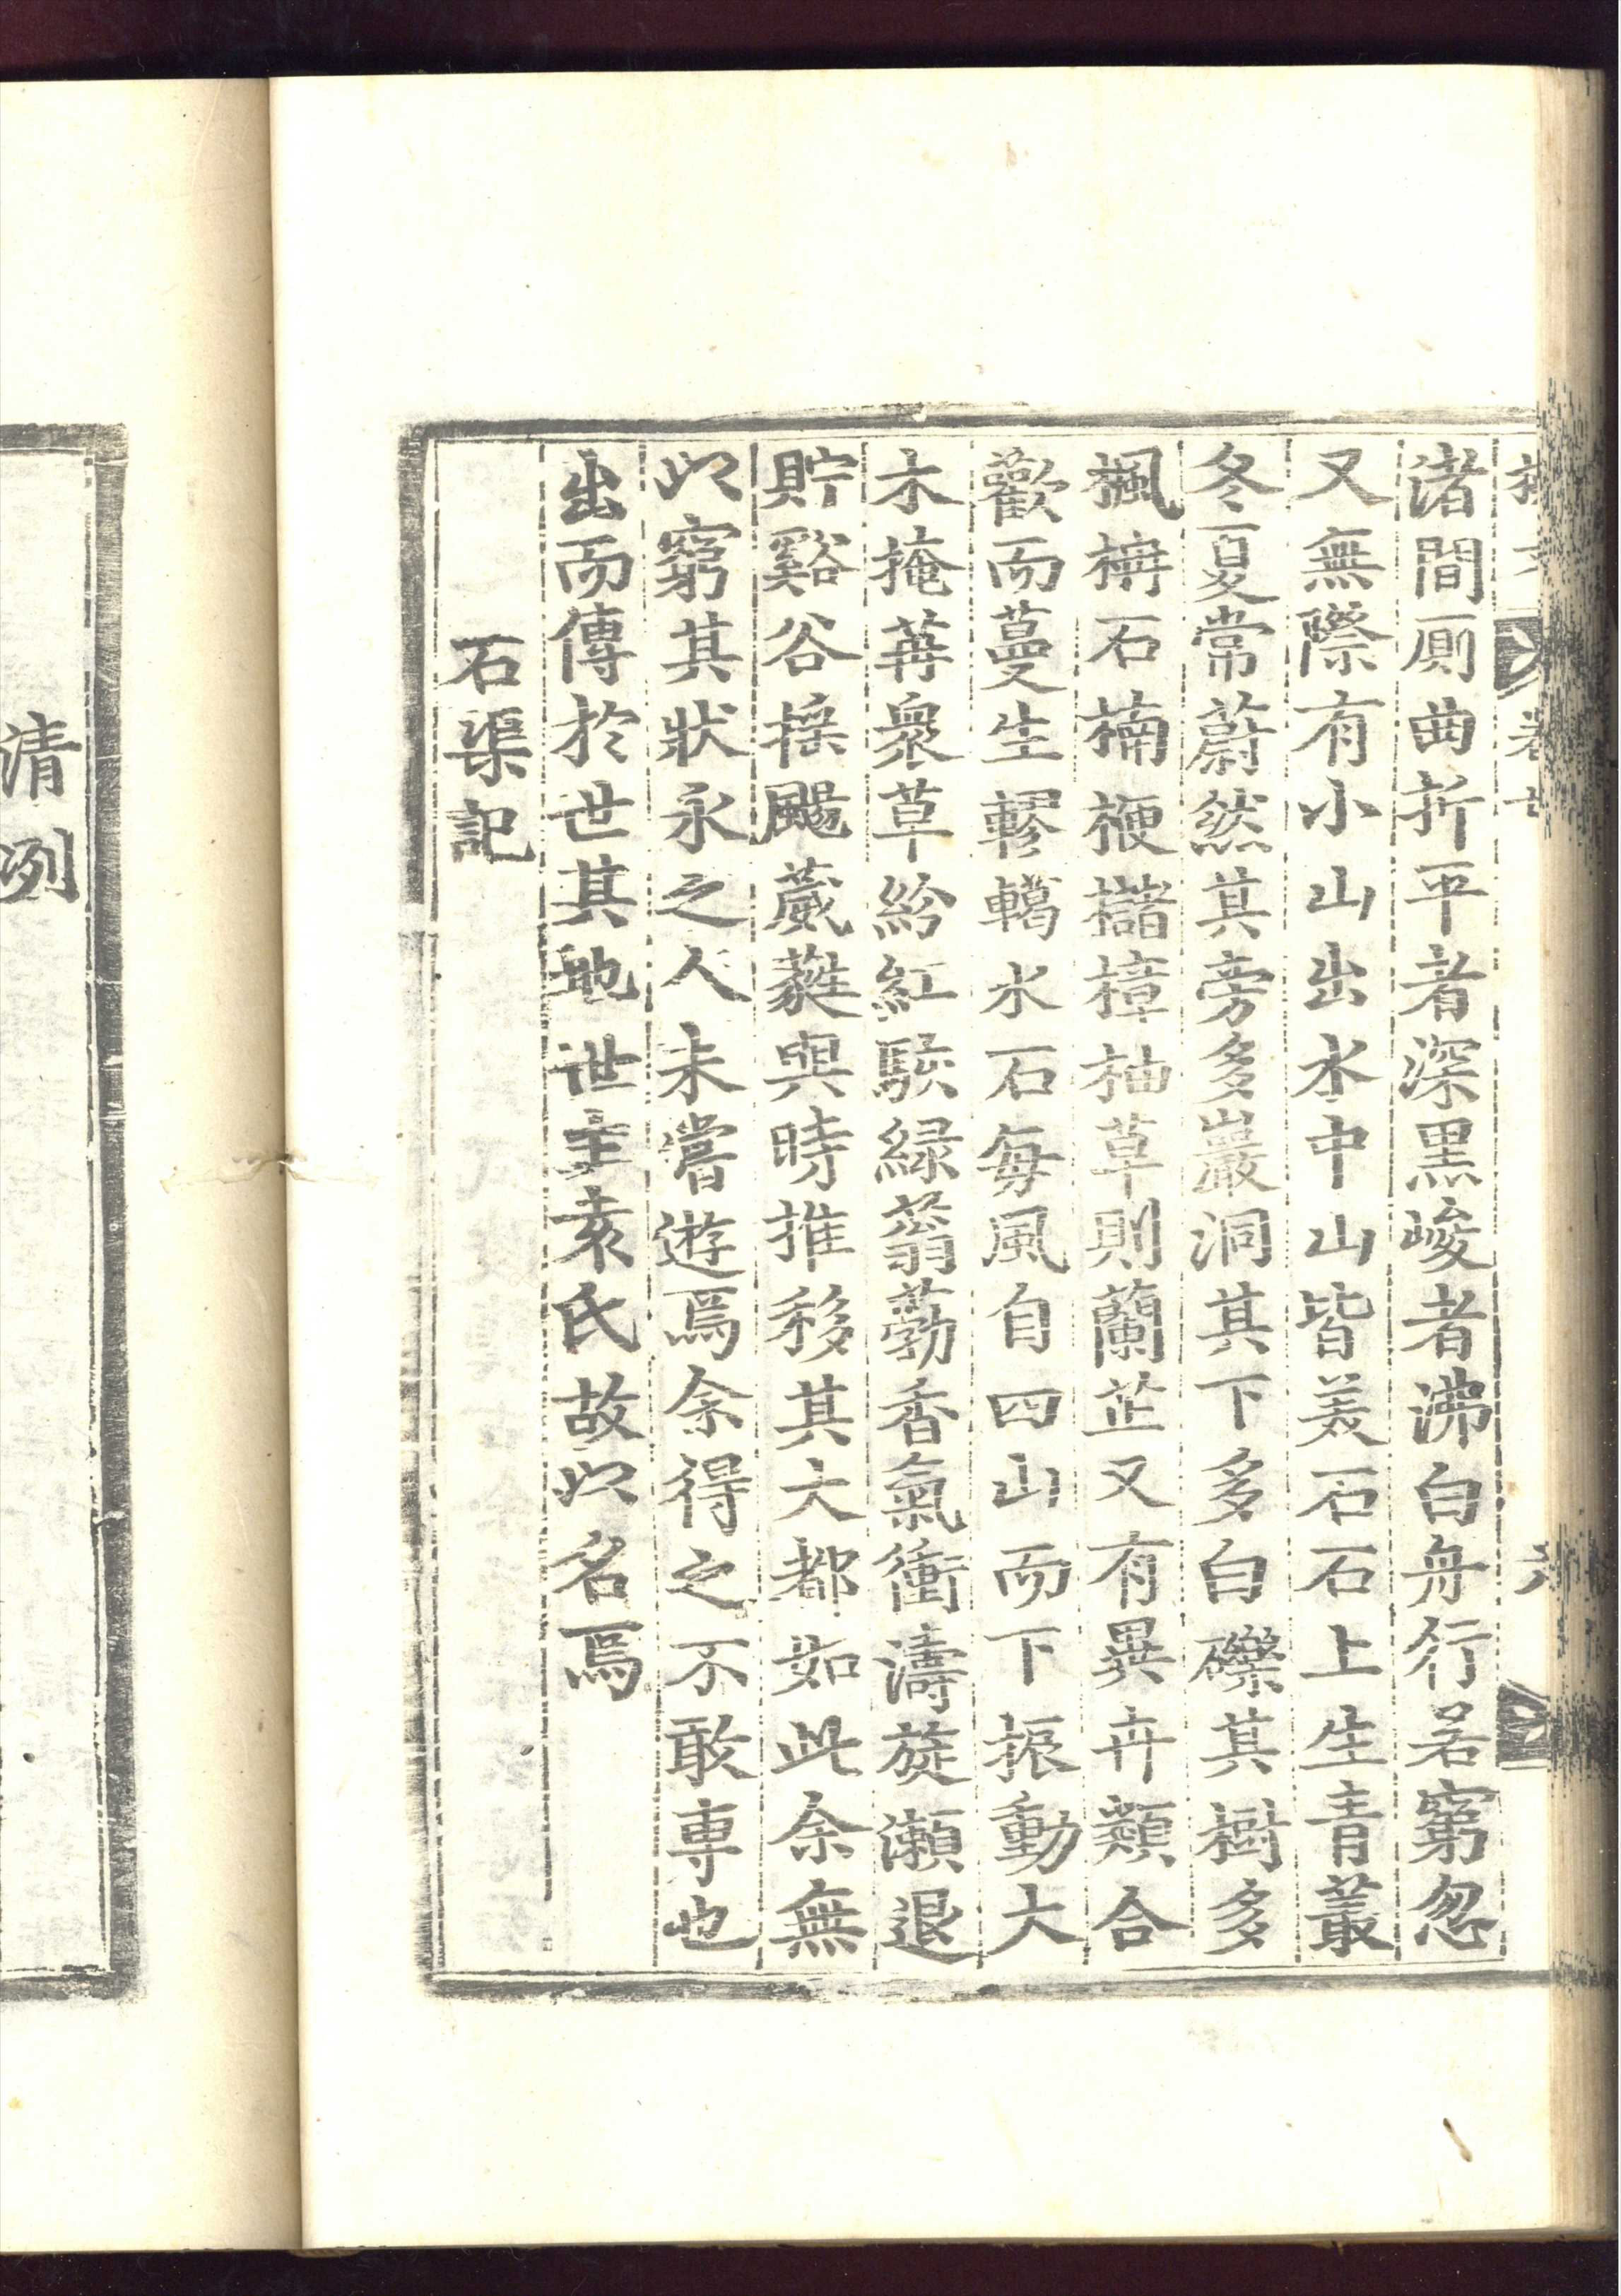 渚間厠曲折平者深黒峻者沸白舟行若窮忽
又無際有小山出水中山皆美石石上生青叢
冬夏常蔚然其旁多巖洞其下多白礫其樹多
楓柟石楠楩櫧樟柚草則蘭芷又有異卉類合
歡而蔓生轇轕水石每風自四山而下振動大
木掩苒衆草紛紅駭緑蓊葧香氣衝濤旋瀬退
貯谿谷揺颺葳蕤與時推移其大都如此余無
以窮其狀永之人未嘗遊焉余得之不敢專也
出而傳於世其地世主袁氏故以名焉
石渠記
清冽